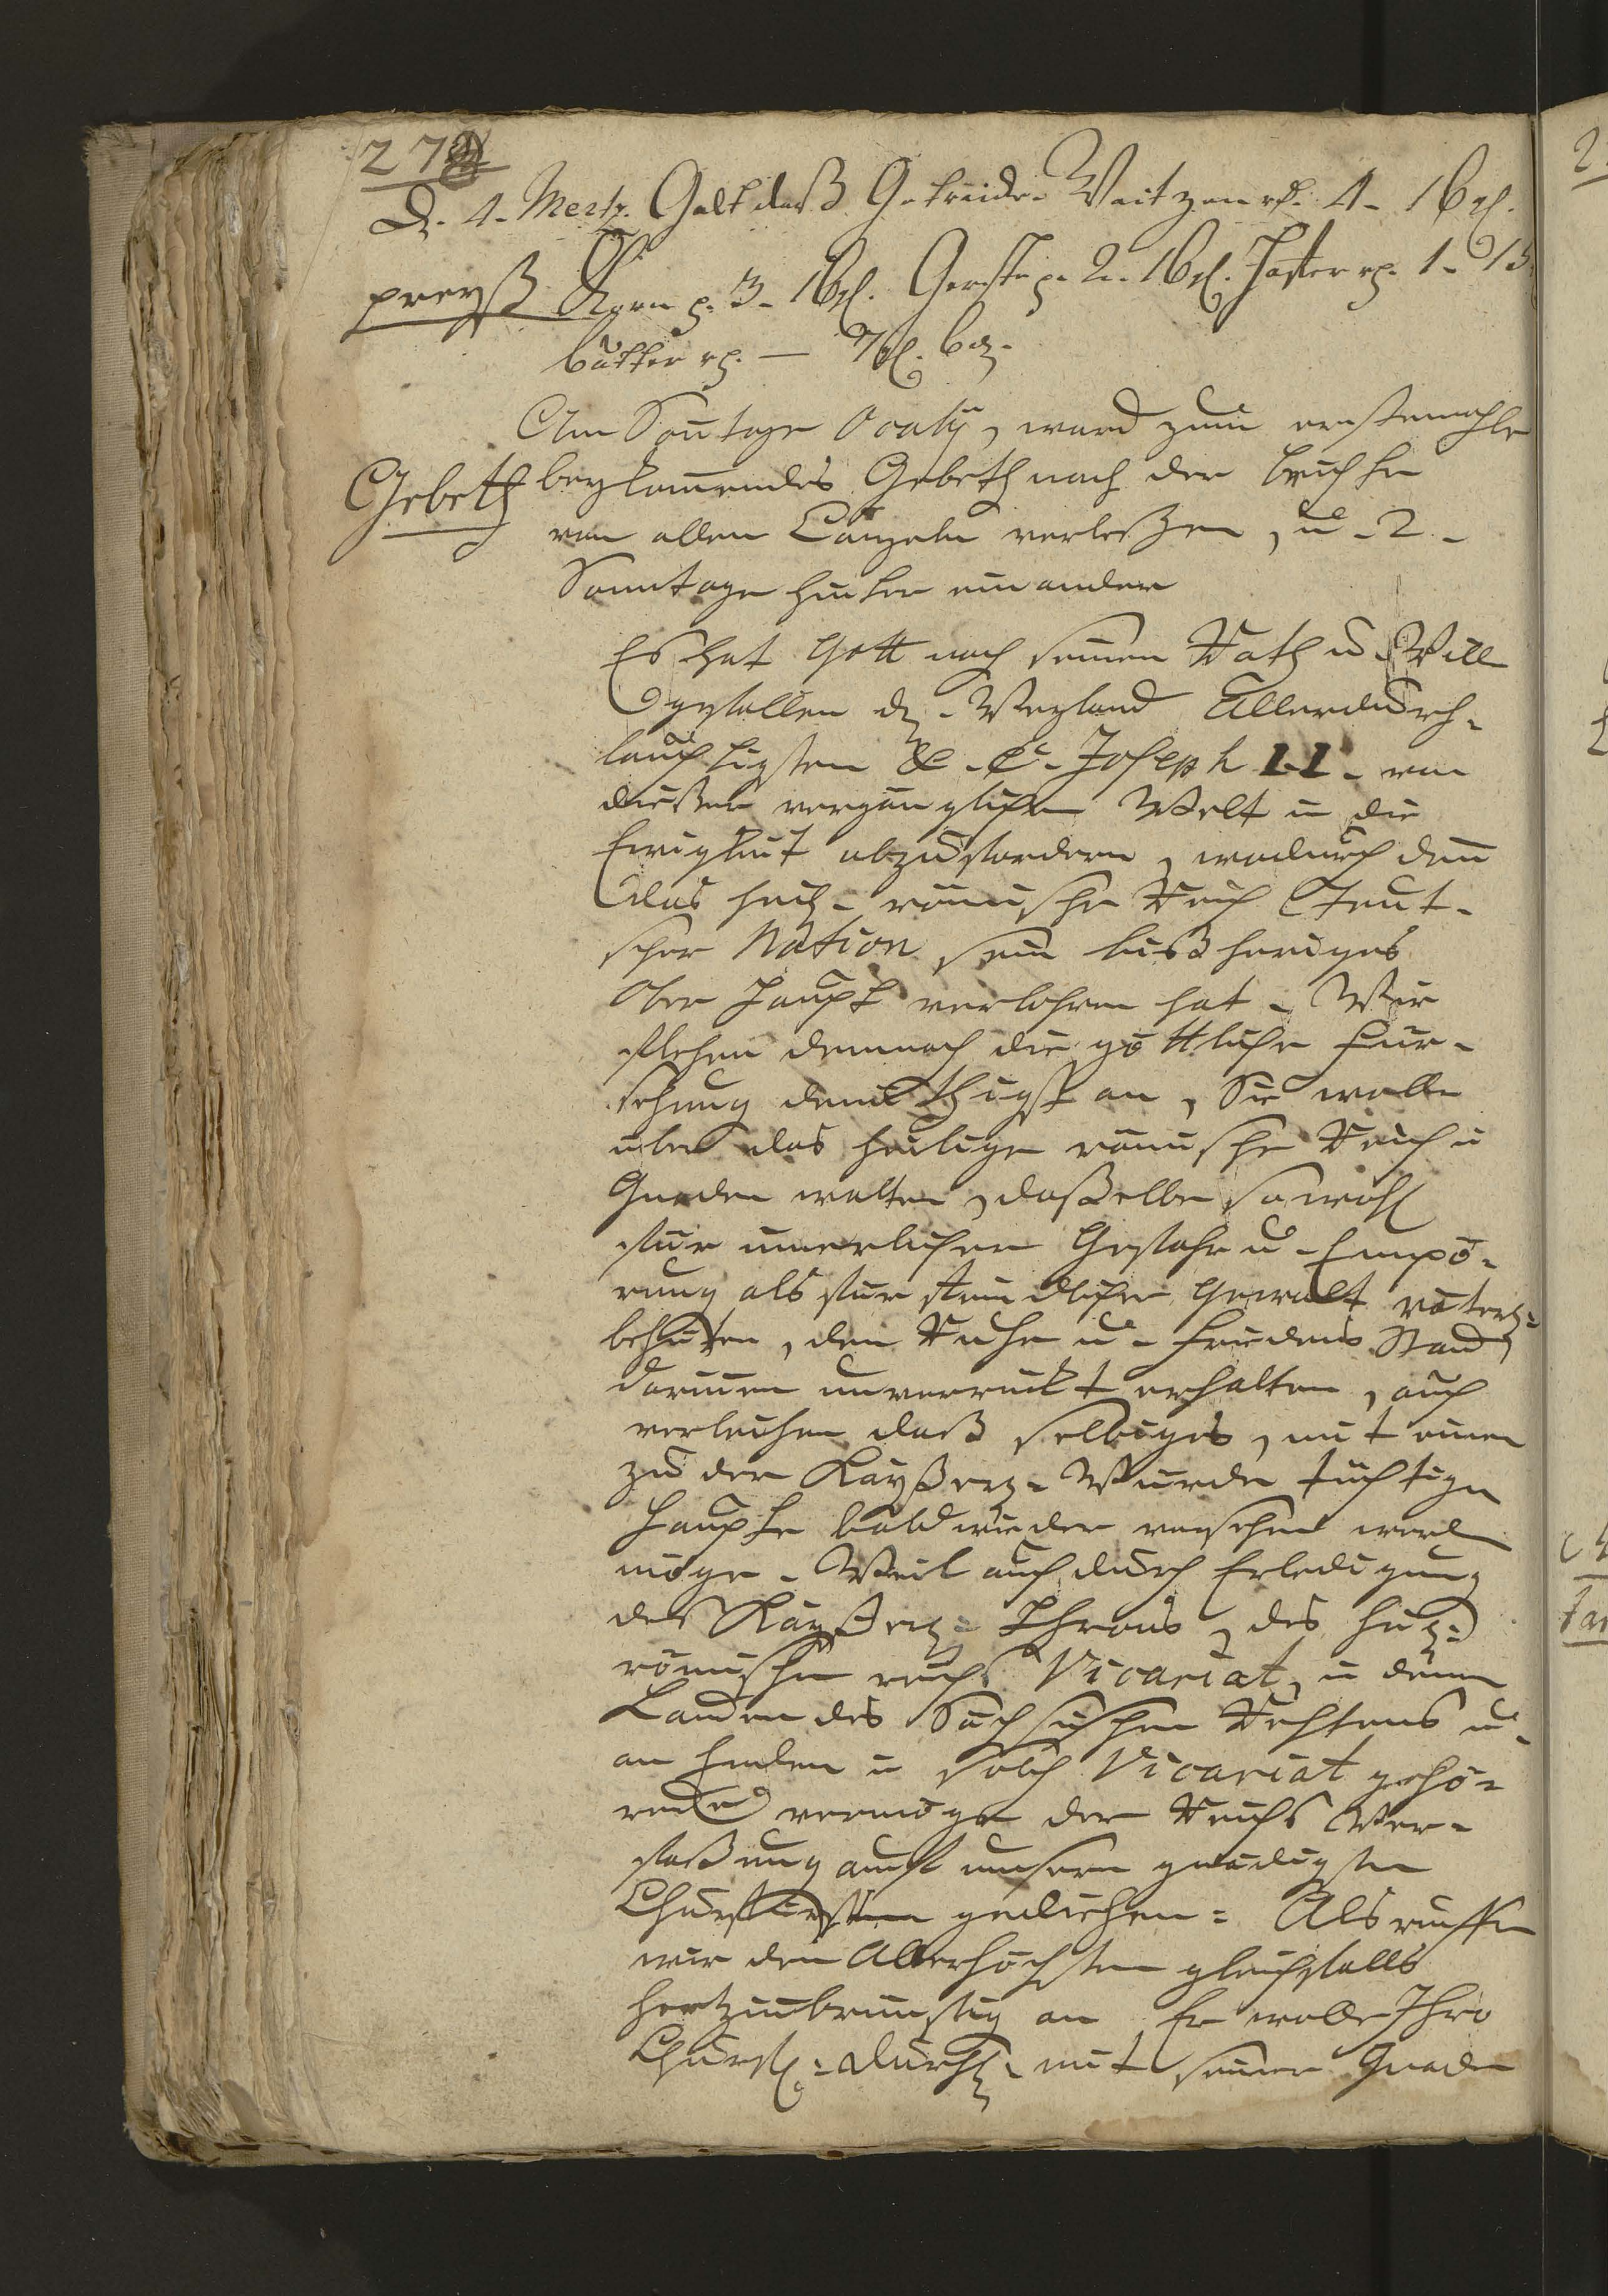 272
D. 4. Mertz. Galt daß Getreide Weitzen rh. 4. 16 gl.
preyß Korn p. 3. 16 gl. Gerste p. 2. 16 gl. Hafter rh. 1. 13
butter rh. — 7 gl. 6 d.
Am Sontage Oculi, ward zum erstemahle
Gebeth beykommendes Gebeth nach der beichte
von allen Canzeln verleßen, u. 2.
Sonntage hinter einander
Es hat Gott nach seinem Rath u. Will
gefallen d. Weyland Allerdurch-
lauchtigsten &. &. Joseph II. von
dießer vergänglichen Welt in die
Ewigkeit abzufordern, wodurch dem
das heil. römische Reich Teut-
scher Nation sein bißheriges
Ober Haupt verlohren hat. Wir
flehen demnach die göttliche Für-
sehung demüthigst an, Sie wolle
über das heilige römische Reich in
Gnaden walten, daßelbe sowohl
für innerlicher Gefahr u. Empö-
rung als für feindlicher Gewalt väterl:
behüten, den Ruhe u. Friedens Stand
darinnen unverruckt erhalten, auch
verleihen daß selbiges, mit einem
zu der Kayßerl. Würde tüchtigen
Haupte bald wieder versehen werden
möge. Weil auch durch Erledigung
des Kayßerl. Throns, des heil:
römischen reichs Vicariat, in denen
Landen des Sächsischen Rechtens u.
an Enden in solch Vicariat gehö-
rend vermöge der Reichs Ver-
faßung auf unsern gnädigsten
Churfürsten gediehen: Als ruffen
wir den Allerhöchsten gleichfalls
hertzinbrünstig an Er wolle Ihro
Churfl. Durchl. mit seiner Gnade